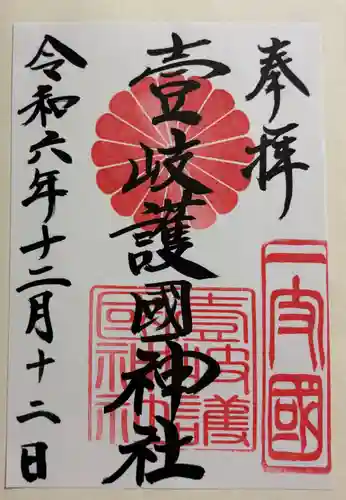 奉拝
一支國
壹岐護國神社
壹岐護國神社
令和六年十二月十二日